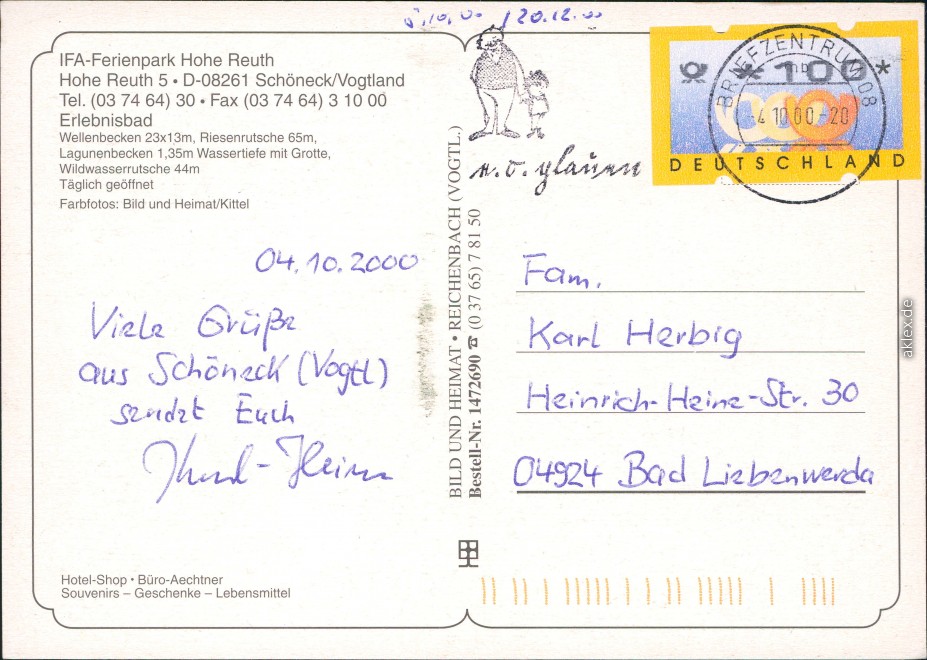 8.10.00 / 20.12.00
IFA-Ferienpark Hohe Reuth
Hohe Reuth 5 • D-08261 Schöneck/Vogtland
Tel. (03 74 64) 30 • Fax (03 74 64) 3 10 00
Erlebnisbad
Wellenbecken 23x13m, Riesenrutsche 65m,
Lagunenbecken 1,35m Wassertiefe mit Grotte,
Wildwasserrutsche 44m
Täglich geöffnet
Farbfotos: Bild und Heimat/Kittel
04.10.2000
Viele Grüße
aus Schöneck (Vogtl)
sendet Euch
Hotel-Shop • Büro-Aechtner
Souvenirs – Geschenke – Lebensmittel
BILD UND HEIMAT • REICHENBACH (VOGTL.)
Bestell-Nr. 1472690 ☎ (0 37 65) 7 81 50
e.o. plauen
*100*
DEUTSCHLAND
BRIEFZENTRUM 08
mb
-4.10.00.-20
Fam.
Karl Herbig
Heinrich-Heine-Str. 30
04924 Bad Liebenwerda
aklex.de